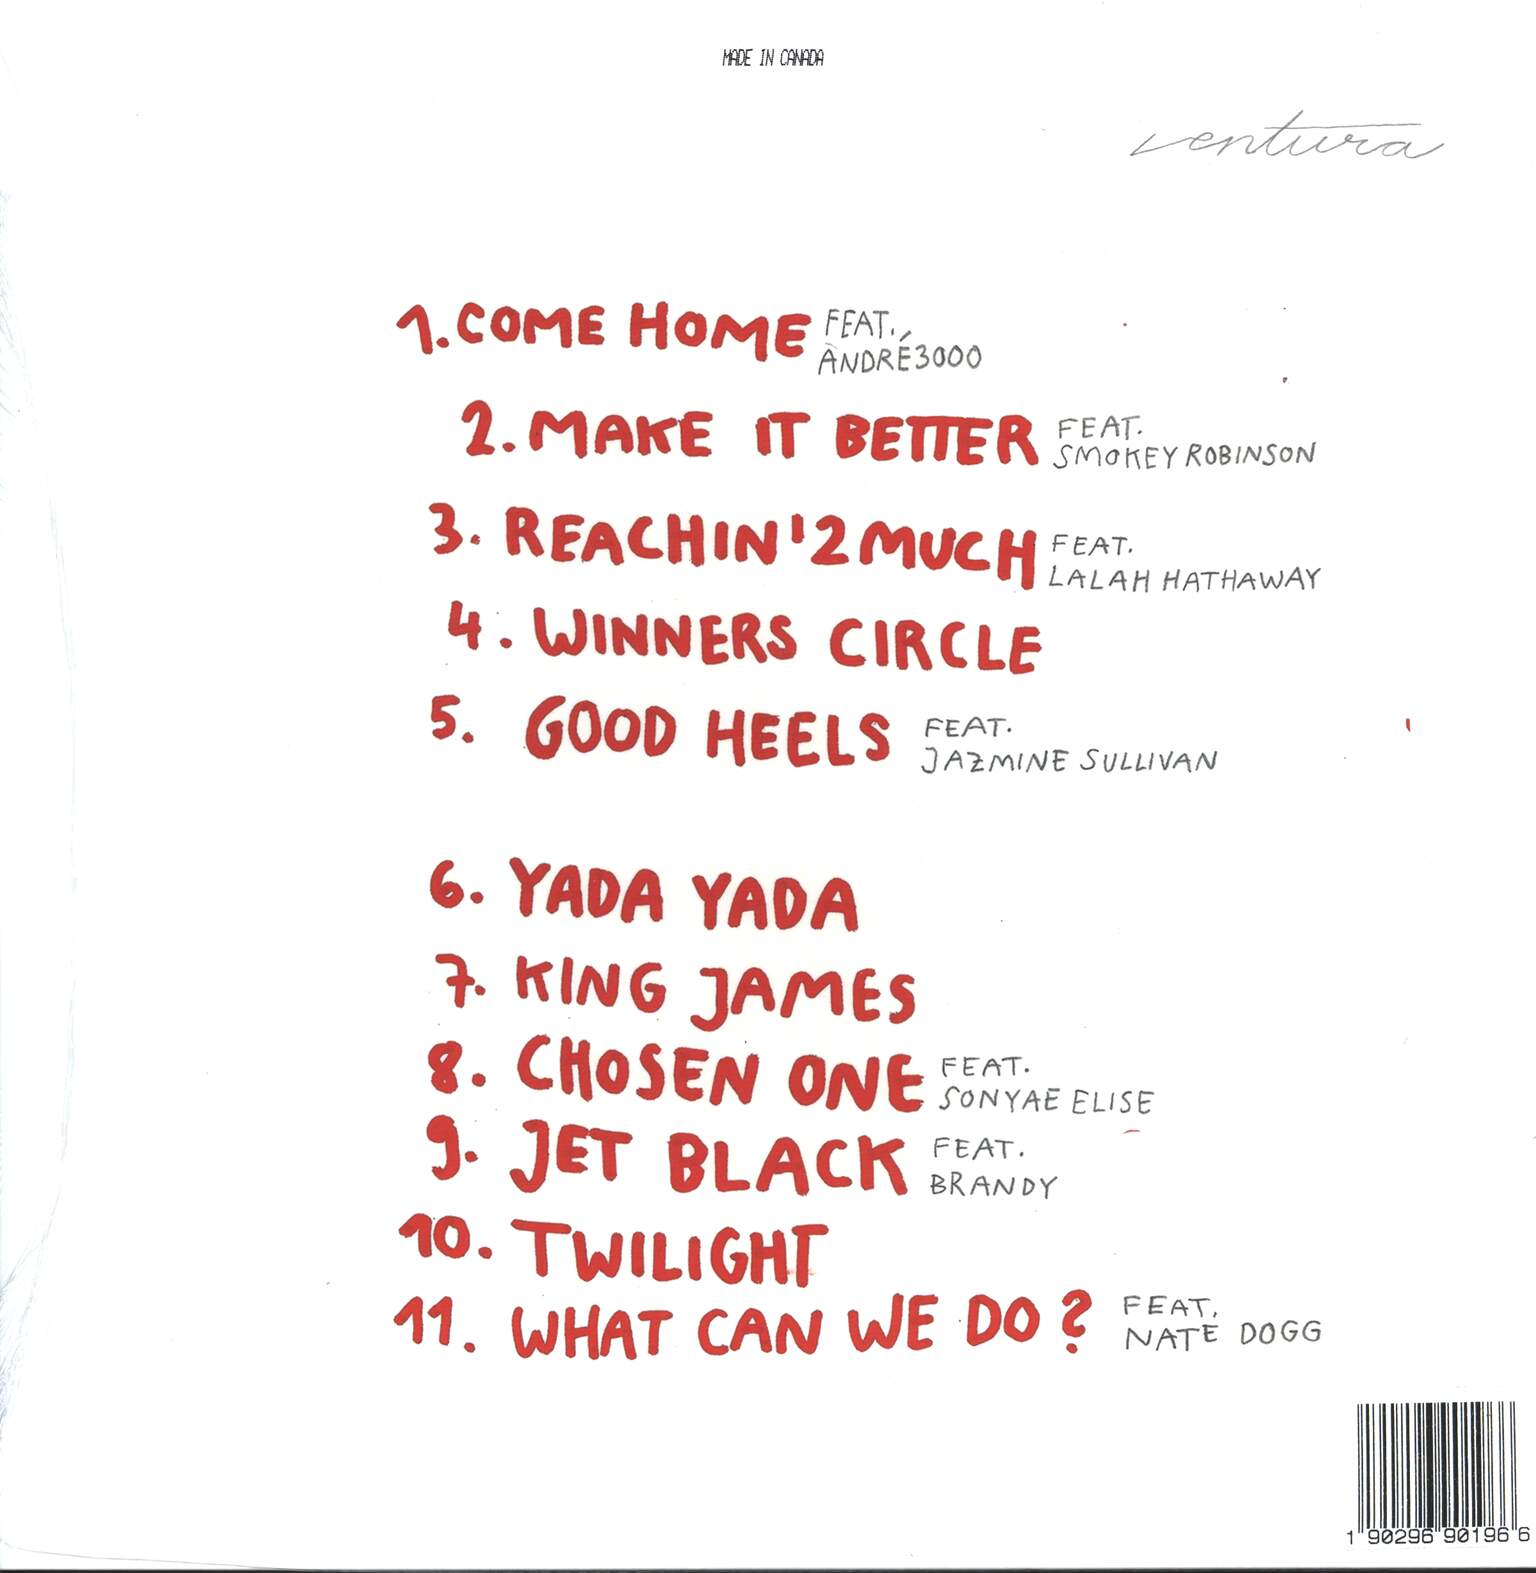 MADE IN CANADA
ventura
1. COME HOME FEAT.
ÀNDRÉ3000
2. MAKE IT BETTER FEAT.
SMOKEY ROBINSON
3. REACHIN'2MUCH FEAT.
LALAH HATHAWAY
4. WINNERS CIRCLE
5. GOOD HEELS FEAT.
JAZMINE SULLIVAN
6. YADA YADA
7. KING JAMES
8. CHOSEN ONE FEAT.
SONYAE ELISE
9. JET BLACK FEAT.
BRANDY
10. TWILIGHT
11. WHAT CAN WE DO? FEAT.
NATE DOGG
1 90296 90196 6